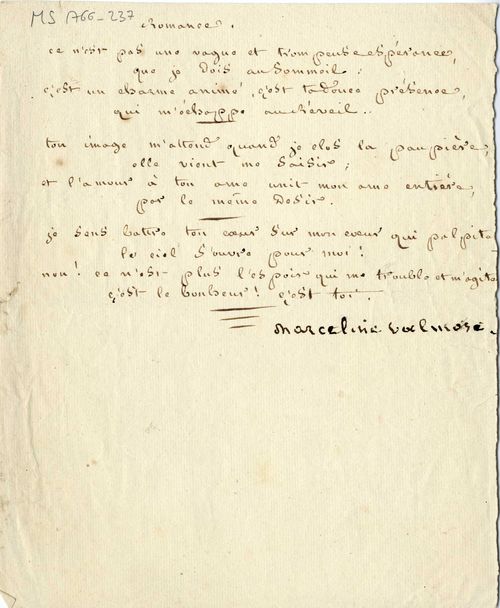 MS 1766-237
Romance.
ce n'est pas une vague et trompeuse espérance,
que je dois au Sommeil :
c'est un charme animé, c'est ta douce présence,
qui m'échappe au réveil..
ton image m'attend quand je clos la paupière,
elle vient me saisir ;
et l'amour à ton ame unit mon ame entière,
par le même desir.
je sens battre ton cœur sur mon cœur qui palpite
le ciel s'ouvre pour moi !
non ! ce n'est plus l'espoir qui me trouble et m'agite
c'est le bonheur ! c'est toi.
Marceline valmore.